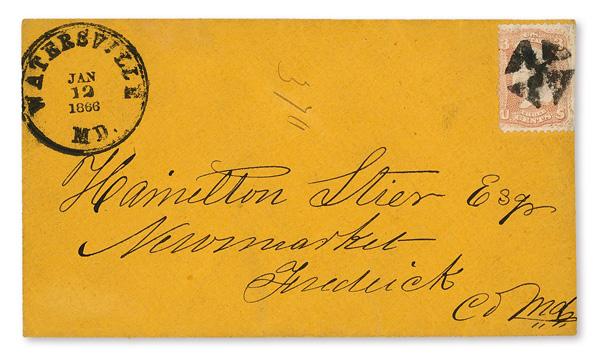 WATERSVILLE
JAN
12
1866
MD.
U CENTS S
Hamilton Stier Esqr
Newmarket
Frederick
Co Md